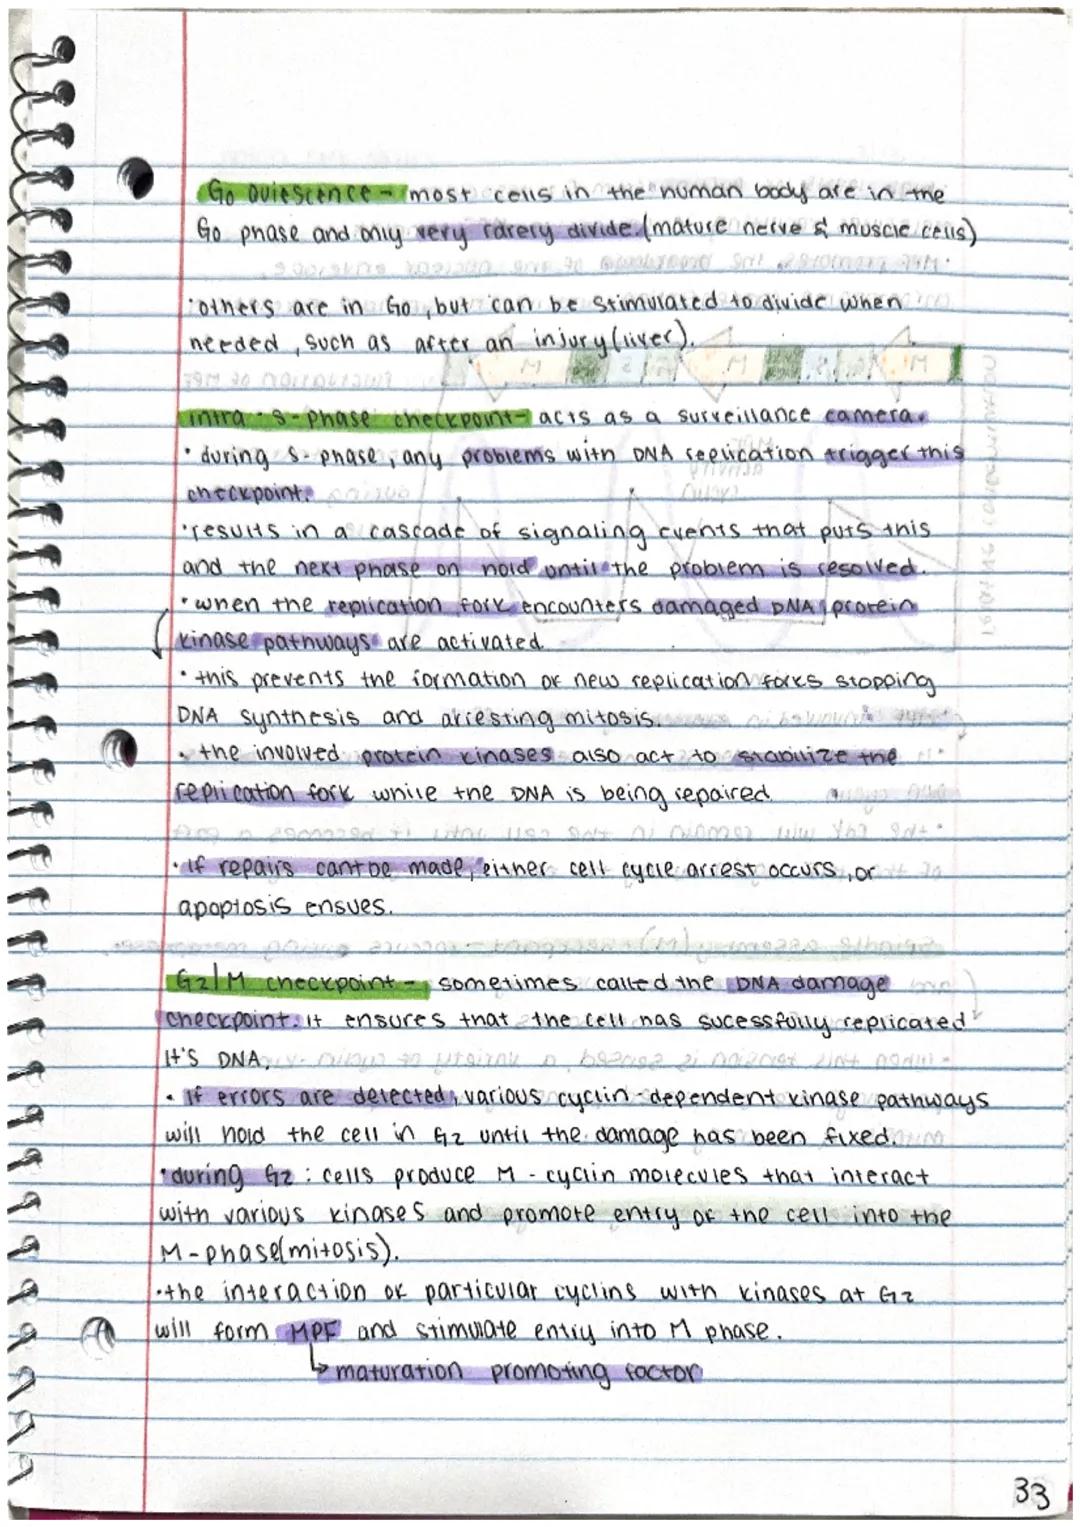 Go Quiescence - most cells in the human body are in the
Go phase and only very rarely divide. (mature nerve & muscle cells)
•others are in Go, but can be stimulated to divide when
needed, such as after an injury (liver).
intra-s-phase checkpoint- acts as a surveillance camera.
• during s-phase, any problems with DNA replication trigger this
checkpoint.
•results in a cascade of signaling events that puts this
and the next phase on hold until the problem is resolved.
•when the replication fork encounters damaged DNA, protein
kinase pathways are activated.
• this prevents the formation of new replication forks stopping
DNA synthesis and arresting mitosis.
• the involved protein kinases also act to stabilize the
replication fork while the DNA is being repaired.
• if repairs cant be made, either cell cycle arrest occurs, or
apoptosis ensues.
G2/M checkpoint - sometimes called the DNA damage
checkpoint. it ensures that the cell has sucessfully replicated
it's DNA.
• if errors are detected, various cyclin-dependent kinase pathways
will hold the cell in G2 until the damage has been fixed.
•during G2: cells produce M-cyclin molecules that interact
with various kinases and promote entry of the cell into the
M-phase(mitosis).
•the interaction of particular cyclins with kinases at G2
will form MPF and stimulate entry into M phase.
maturation promoting factor
33